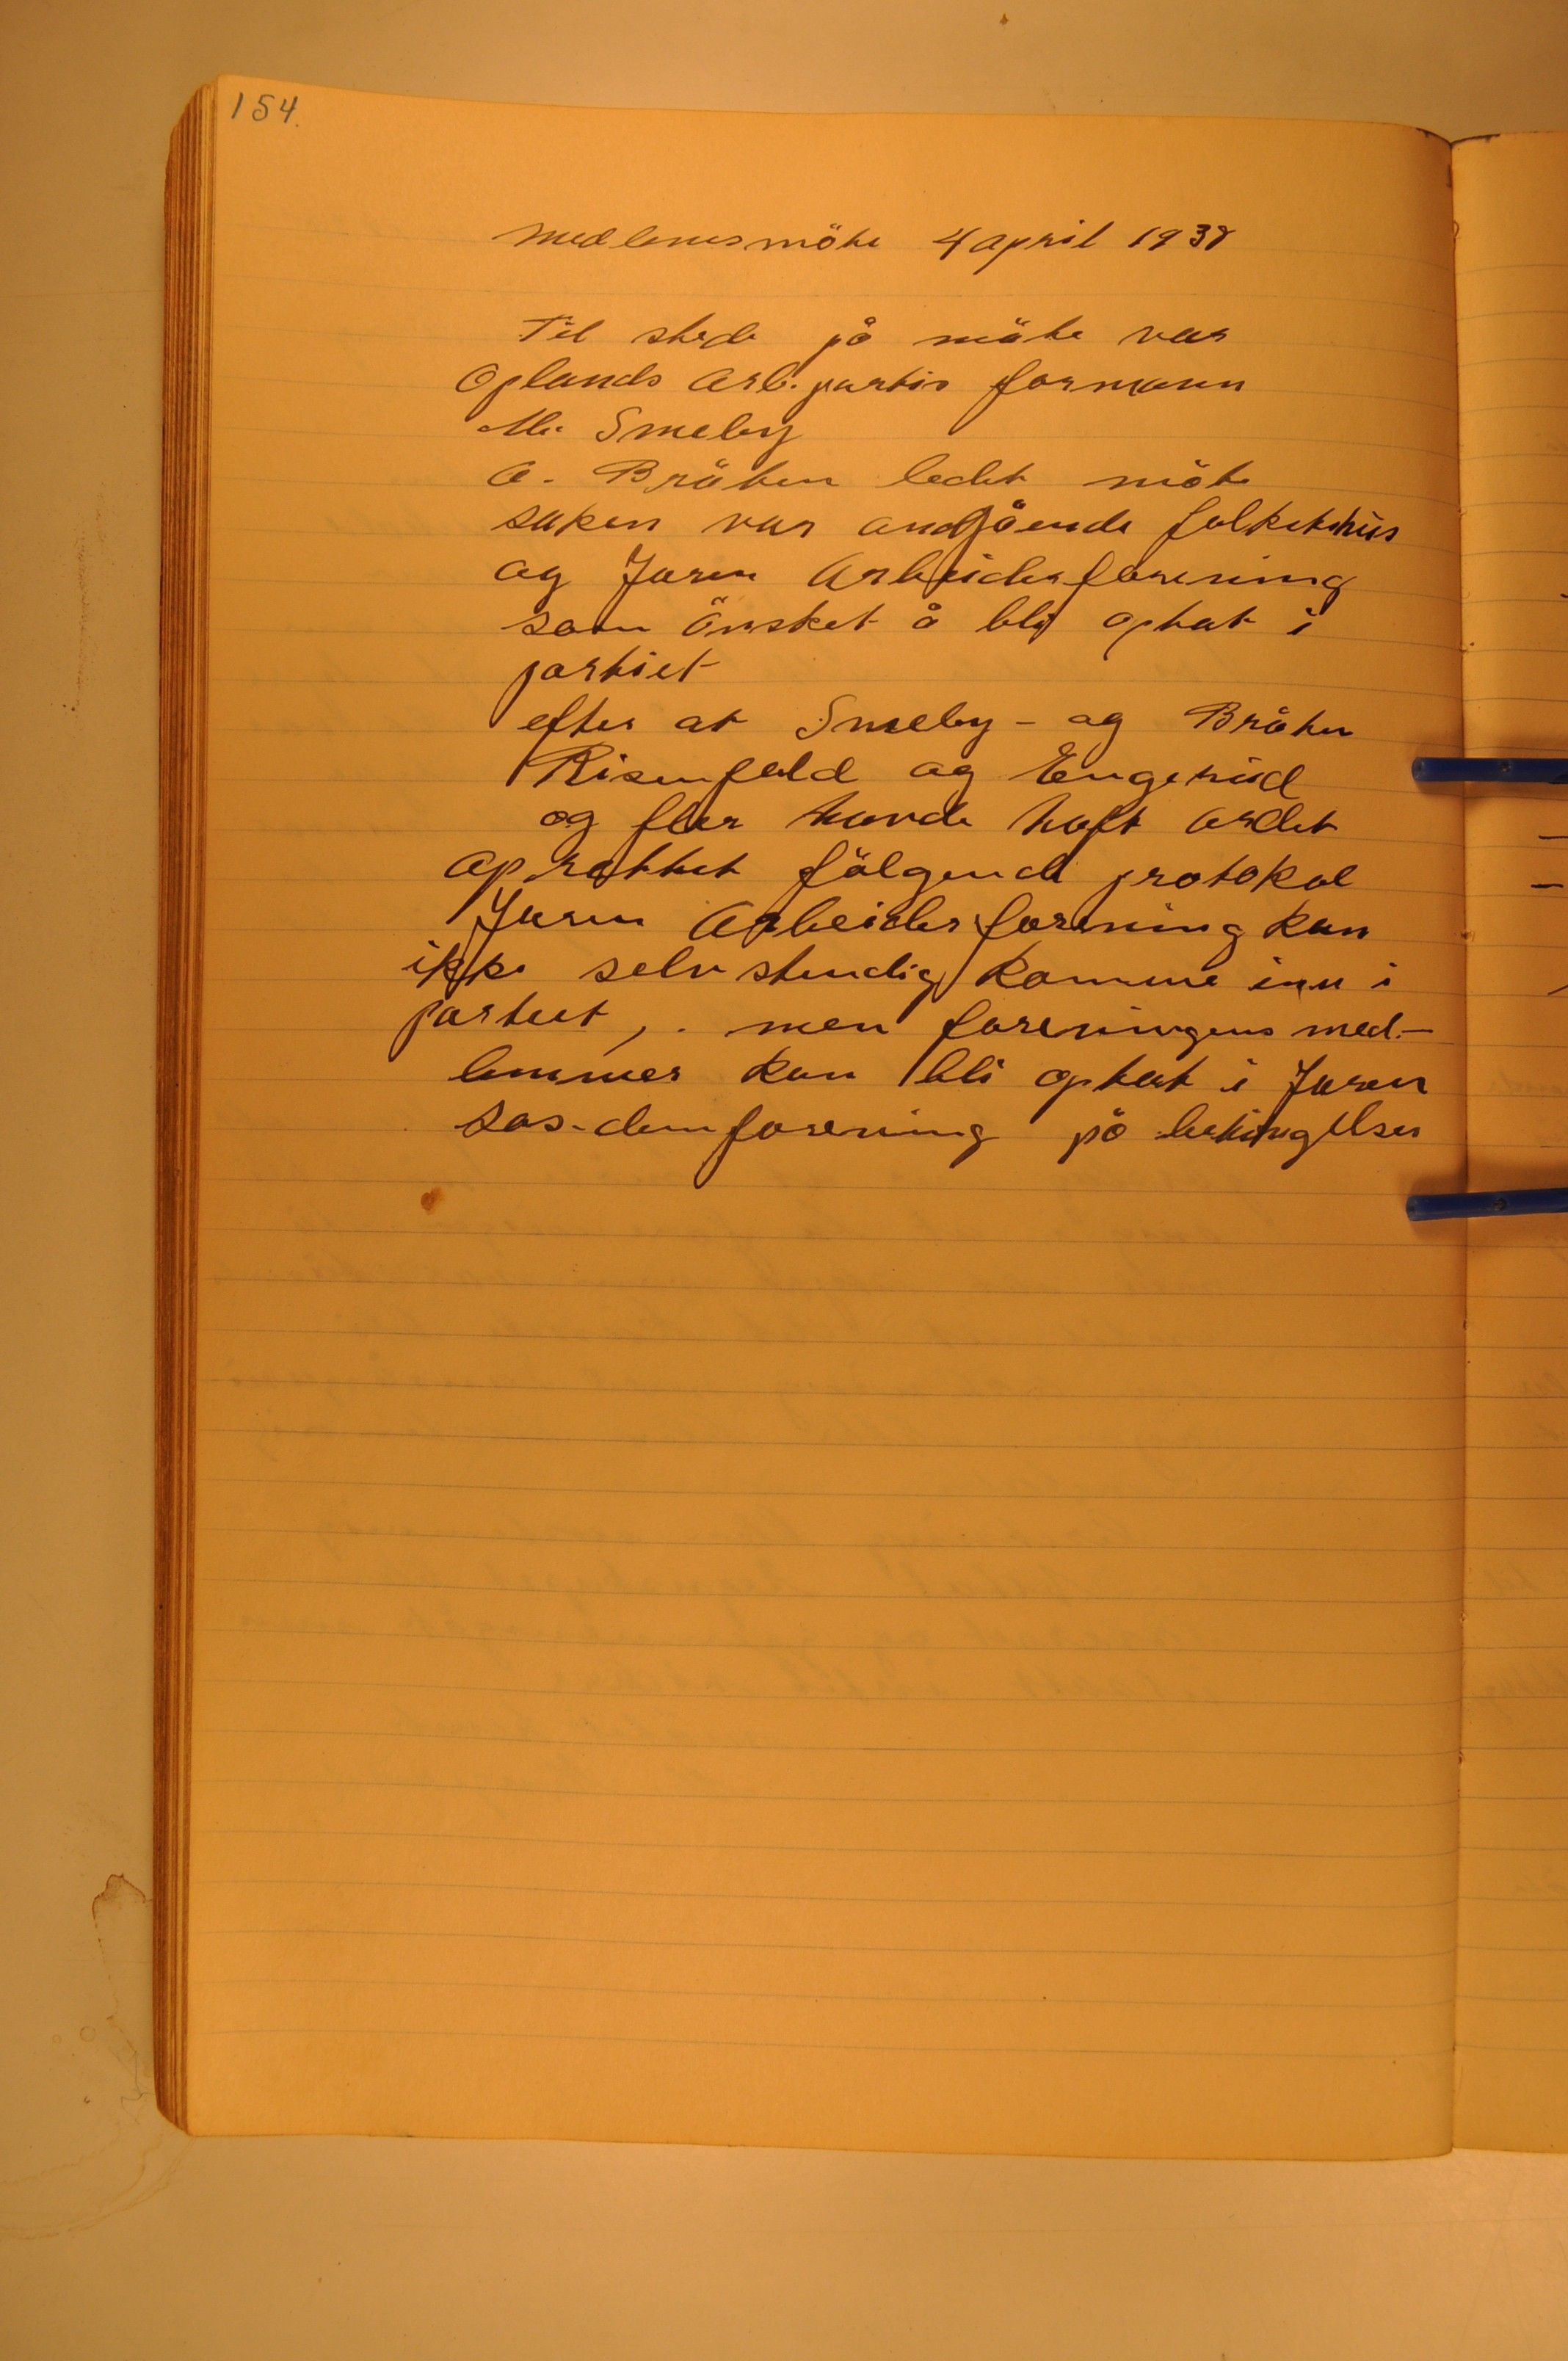 154.
medlemsmöte 4 april 1938
Til stede på möte var
Oplands Arb. partis formann
M. Smeby
A. Bråten ledet möte
saken var andgående folketshus
og Jaren Arbeiderforening
som önsket å bli optat i
partiet
efter at Smeby - og Bråten
Risenfald og Engerud
og fler havde haft ordet
oprettet fölgende protokol
Jaren Arbeiderforening kan
ikke selvstendig komme inn i
partiet, . men foreningens med-
lemmer kan bli optat i Jaren
sos-demforening på betingelser